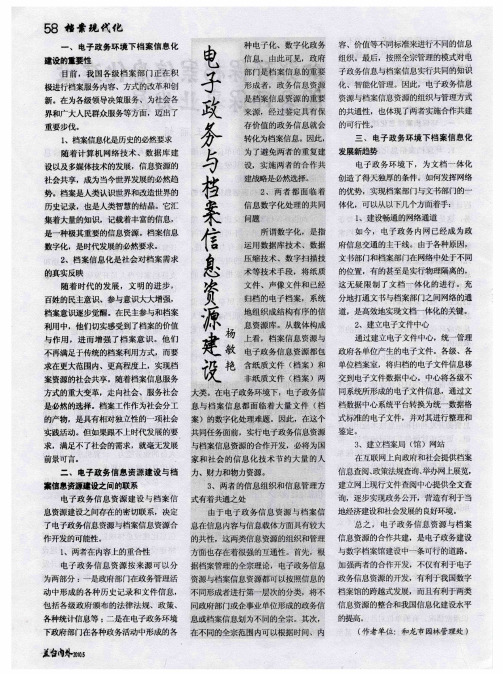 58 档案现代化
电子政务与档案信息资源建设
杨敏艳
一、电子政务环境下档案信息化
建设的重要性
目前，我国各级档案部门正在积
极进行档案服务内容、方式的改革和创
新。在为各级领导决策服务、为社会各
界和广大人民群众服务等方面，迈出了
重要步伐。
1、档案信息化是历史的必然要求
随着计算机网络技术、数据库建
设以及多媒体技术的发展，信息资源的
社会共享，成为当今世界发展的必然趋
势。档案是人类认识世界和改造世界的
历史记录，也是人类智慧的结晶。它汇
集着大量的知识，记载着丰富的信息，
是一种极其重要的信息资源，档案信息
数字化，是时代发展的必然要求。
2、档案信息化是社会对档案需求
的真实反映
随着时代的发展，文明的进步，
百姓的民主意识、参与意识大大增强，
档案意识逐步觉醒。在民主参与和档案
利用中，他们切实感受到了档案的价值
与作用，进而增强了档案意识。他们
不再满足于传统的档案利用方式，而要
求在更大范围内、更高程度上，实现档
案资源的社会共享，随着档案信息服务
方式的重大变革，走向社会、服务社会
是必然的选择。档案工作作为社会分工
的产物，是具有相对独立性的一项社会
实践活动。但如果跟不上时代发展的要
求，满足不了社会的需求，就毫无发展
前景可言。
二、电子政务信息资源建设与档
案信息资源建设之间的联系
电子政务信息资源建设与档案信
息资源建设之间存在的密切联系，决定
了电子政务信息资源与档案信息资源合
作开发的可能性。
1、两者在内容上的重合性
电子政务信息资源按来源可以分
为两部分：一是政府部门在政务管理活
动中形成的各种历史记录和文件信息，
包括各级政府颁布的法律法规、政策、
各种统计信息等；二是在电子政务环境
下政府部门在各种政务活动中形成的各
种电子化、数字化政务
信息。由此可见，政府
部门是档案信息的重要
形成者，政务信息资源
是档案信息资源的重要
来源，经过鉴定具有保
存价值的政务信息就会
转化为档案信息。因此，
为了避免两者的重复建
设，实施两者的合作共
建战略是必然选择。
2、两者都面临着
信息数字化处理的共同
问题
所谓数字化，是指
运用数据库技术、数据
压缩技术、数字扫描技
术等技术手段，将纸质
文件、声像文件和已经
归档的电子档案，系统
地组织成结构有序的信
息资源库。从载体构成
上看，档案信息资源与
电子政务信息资源都包
含纸质文件（档案）和
非纸质文件（档案）两
大类。在电子政务环境下，电子政务信
息与档案信息都面临着大量文件（档
案）的数字化处理难题，因此，在这个
共同任务面前，实行电子政务信息资源
与档案信息资源的合作开发，必将为国
家和社会的信息化技术节约大量的人
力、财力和物力资源。
3、两者的信息组织和信息管理方
式有着共通之处
由于电子政务信息资源与档案信
息在信息内容与信息载体方面具有较大
的共性，这两类信息资源的组织和管理
方面也存在着很强的互通性。首先，根
据档案管理的全宗理论，电子政务信息
资源与档案信息资源都可以按照信息的
不同形成者进行第一层次的分类，将不
同政府部门或企事业单位形成的政务信
息或档案信息划为不同的全宗。其次，
在不同的全宗范围内可以根据时间、内
容、价值等不同标准来进行不同的信息
组织。最后，按照全宗管理的模式对电
子政务信息与档案信息实行共同的知识
化、智能化管理。因此，电子政务信息
资源与档案信息资源的组织与管理方式
的共通性，也体现了两者实施合作共建
的可行性。
三、电子政务环境下档案信息化
发展新趋势
电子政务环境下，为文档一体化
创造了得天独厚的条件。如何发挥网络
的优势，实现档案部门与文书部门的一
体化，可以从以下几个方面着手：
1、建设畅通的网络通道
如今，电子政务内网已经成为政
府信息交通的主干线。由于各种原因，
文书部门和档案部门在网络中处于不同
的位置，有的甚至是实行物理隔离的，
这无疑限制了文档一体化的进行。充
分地打通文书与档案部门之间网络的通
道，是高效地实现文档一体化的关键。
2、建立电子文件中心
通过建立电子文件中心，统一管理
政府各单位产生的电子文件。各级、各
单位档案室，将归档的电子文件信息移
交到电子文件数据中心，中心将各级不
同系统所形成的电子文件信息，通过文
档数据中心系统平台转换为统一数据格
式标准的电子文件，并对其进行整理和
鉴定。
3、建立档案局（馆）网站
在互联网上向政府和社会提供档案
信息查阅、政策法规查询、举办网上展览，
建立网上现行文件查阅中心提供全文查
询，逐步实现政务公开，营造有利于当
地经济建设和社会发展的良好环境。
总之，电子政务信息资源与档案
信息资源的合作共建，是电子政务建设
与数字档案馆建设中一条可行的道路，
加强两者的合作开发，不仅有利于电子
政务信息资源的开发，有利于我国数字
档案馆的跨越式发展，而且有利于两类
信息资源的整合和我国信息化建设水平
的提高。
（作者单位：和龙市园林管理处）
兰台内外·2010.5